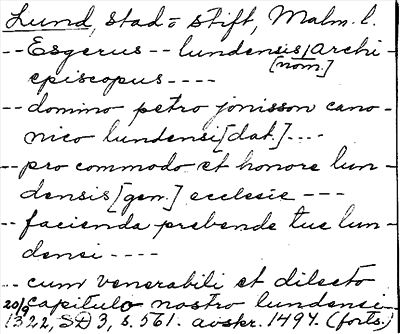 Lund, stad o stift, Malm. l.
-- Esgerus -- lundensis [nom.] archi-
episcopus ----
-- domino petro jonisson cano-
nico lundensi [dat.] ---
-- pro commodo et honore lun-
densis [gen.] ecclesie ---
-- facienda prebende tue lun-
densi ----
-- cum venerabili et dilecto
capitulo nostro lundensi
20/9 1322, SD 3, s. 561. avskr. 1494. (forts.)